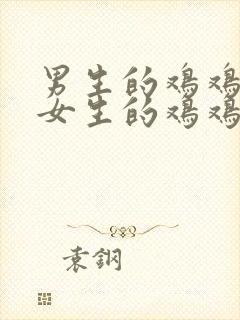 男生的鸡鸡
女生的鸡鸡
袁鋼